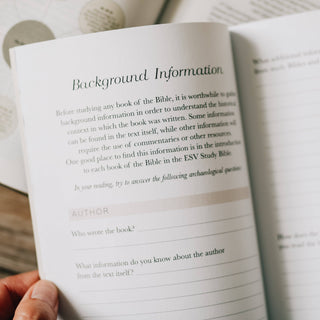 Background Information
Before studying any book of the Bible, it is worthwhile to gather
background information in order to understand the historical
context in which the book was written. Some information
can be found in the text itself, while other information will
require the use of commentaries or other resources.
One good place to find this information is in the introduction
to each book of the Bible in the ESV Study Bible.
In your reading, try to answer the following archaeological questions:
AUTHOR
Who wrote the book?
What information do you know about the author
from the text itself?
What additional inform
from